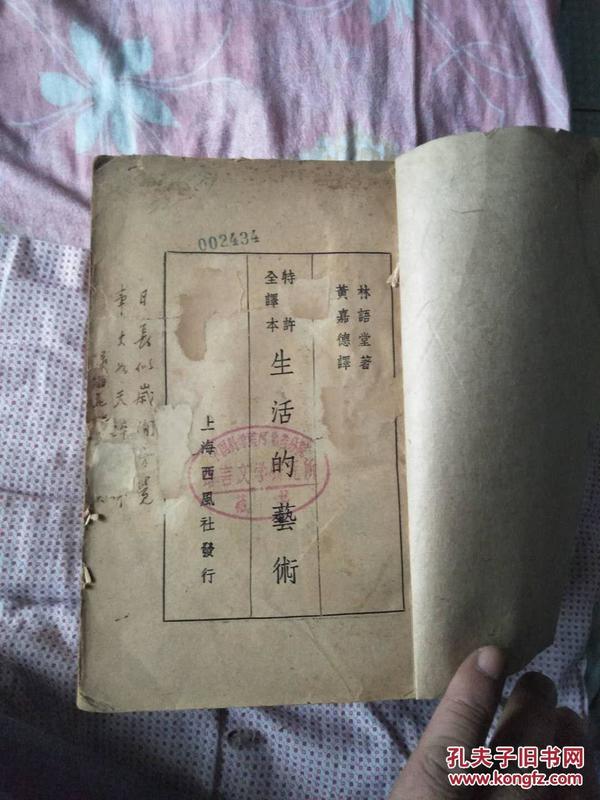 002434
林語堂著
黃嘉德譯
特許
全譯本
生活的藝術
上海西風社發行
日長似歲閑方覺
事大如天醉
孔夫子旧书网
www.kongfz.com